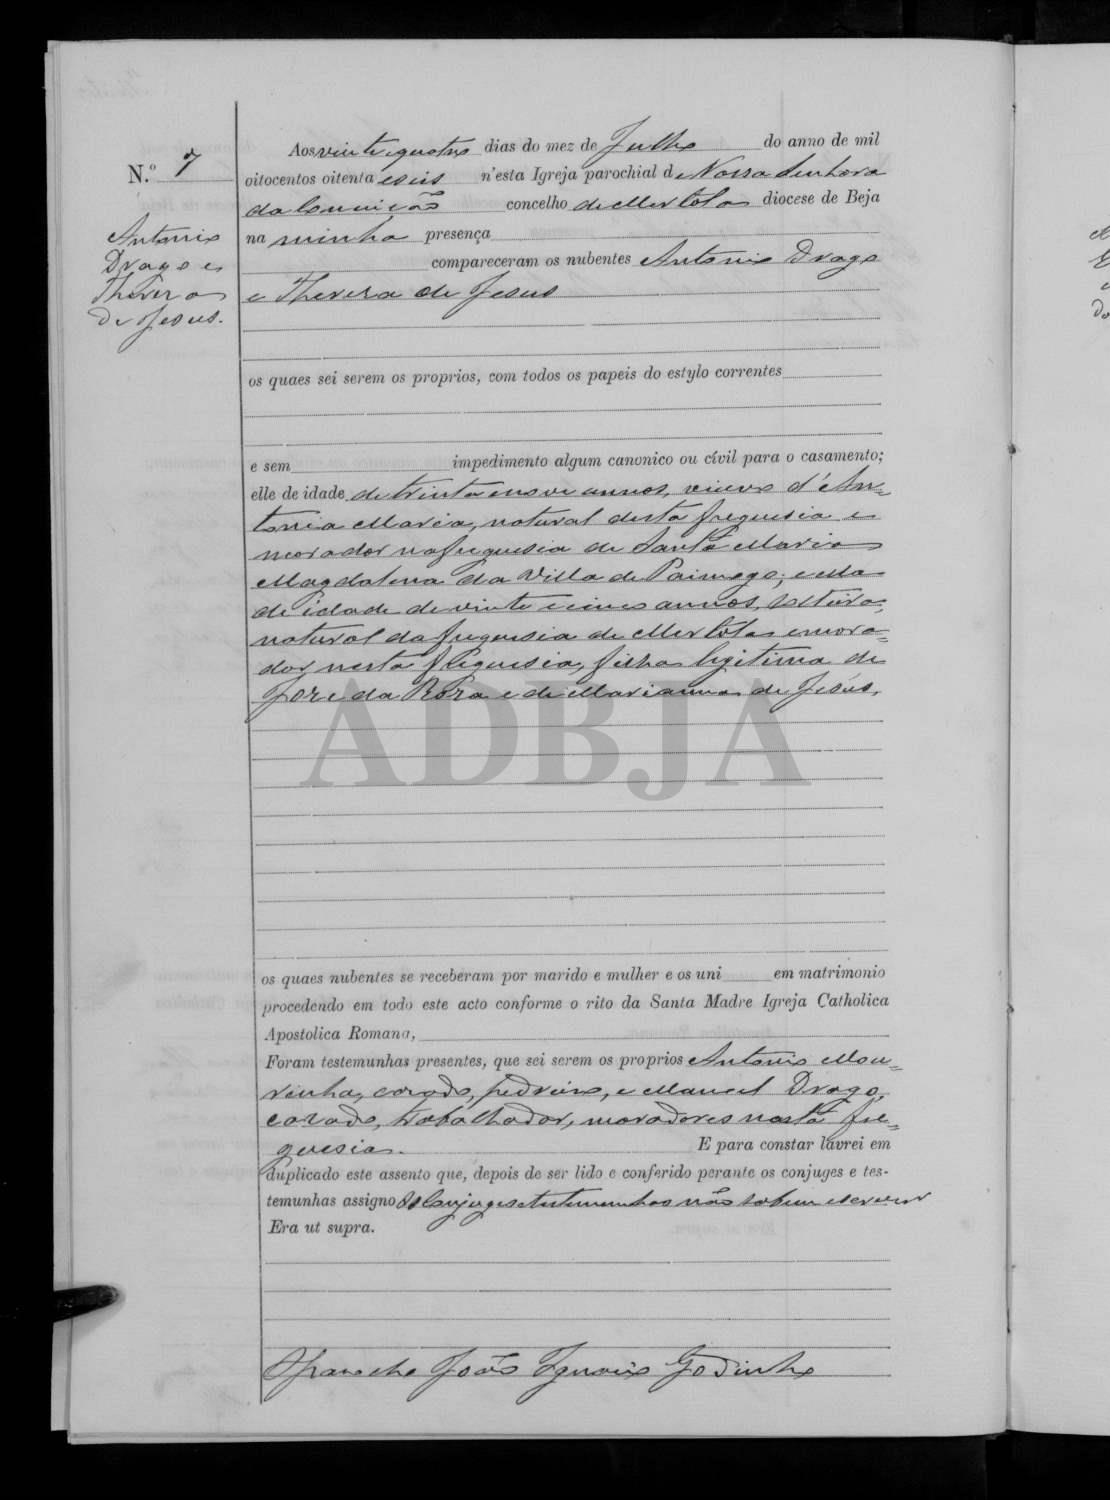 N.º 7
Antonio
Drago e
Thereza
de Jesus.
Aos vinte e quatro dias do mez de Julho do anno de mil
oitocentos oitenta e seis n'esta Igreja parochial de Nossa Senhora
da Conceição concelho de Mertola diocese de Beja
na minha presença
compareceram os nubentes Antonio Drago
e Thereza de Jesus
os quaes sei serem os proprios, com todos os papeis do estylo correntes
e sem impedimento algum canonico ou civil para o casamento;
elle de idade de trinta e nove annos, viuvo d'An-
tonia Maria, natural desta freguesia e
morador na freguesia de Santa Maria
Magdalena da Villa de ; e ella
de idade de vinte e cinco annos, solteira,
natural da freguesia de Mertola e mora=
dor nesta freguesia, filha legitima de
José da Roza e de Marianna de Jesús.
ADBJA
os quaes nubentes se receberam por marido e mulher e os uni em matrimonio
procedendo em todo este acto conforme o rito da Santa Madre Igreja Catholica
Apostolica Romana,
Foram testemunhas presentes, que sei serem os proprios Antonio Mou-
rinha, cazado, pedreiro, e Manoel Drago,
cazado, trabalhador, moradores nesta fre=
guesia. E para constar lavrei em
duplicado este assento que, depois de ser lido e conferido perante os conjuges e tes-
temunhas assigno Os Conjuges e testemunhas não sabem escrever
Era ut supra.
O Parocho João Ignacio Godinho